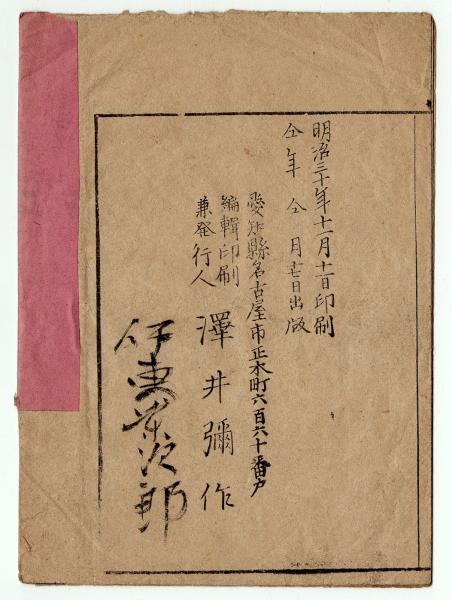 明治三十年十一月十一日印刷
仝年仝月廿七日出版
愛知縣名古屋市正木町六百六十番戸
編輯印刷
兼発行人
澤井彌作
伊東榮次郎